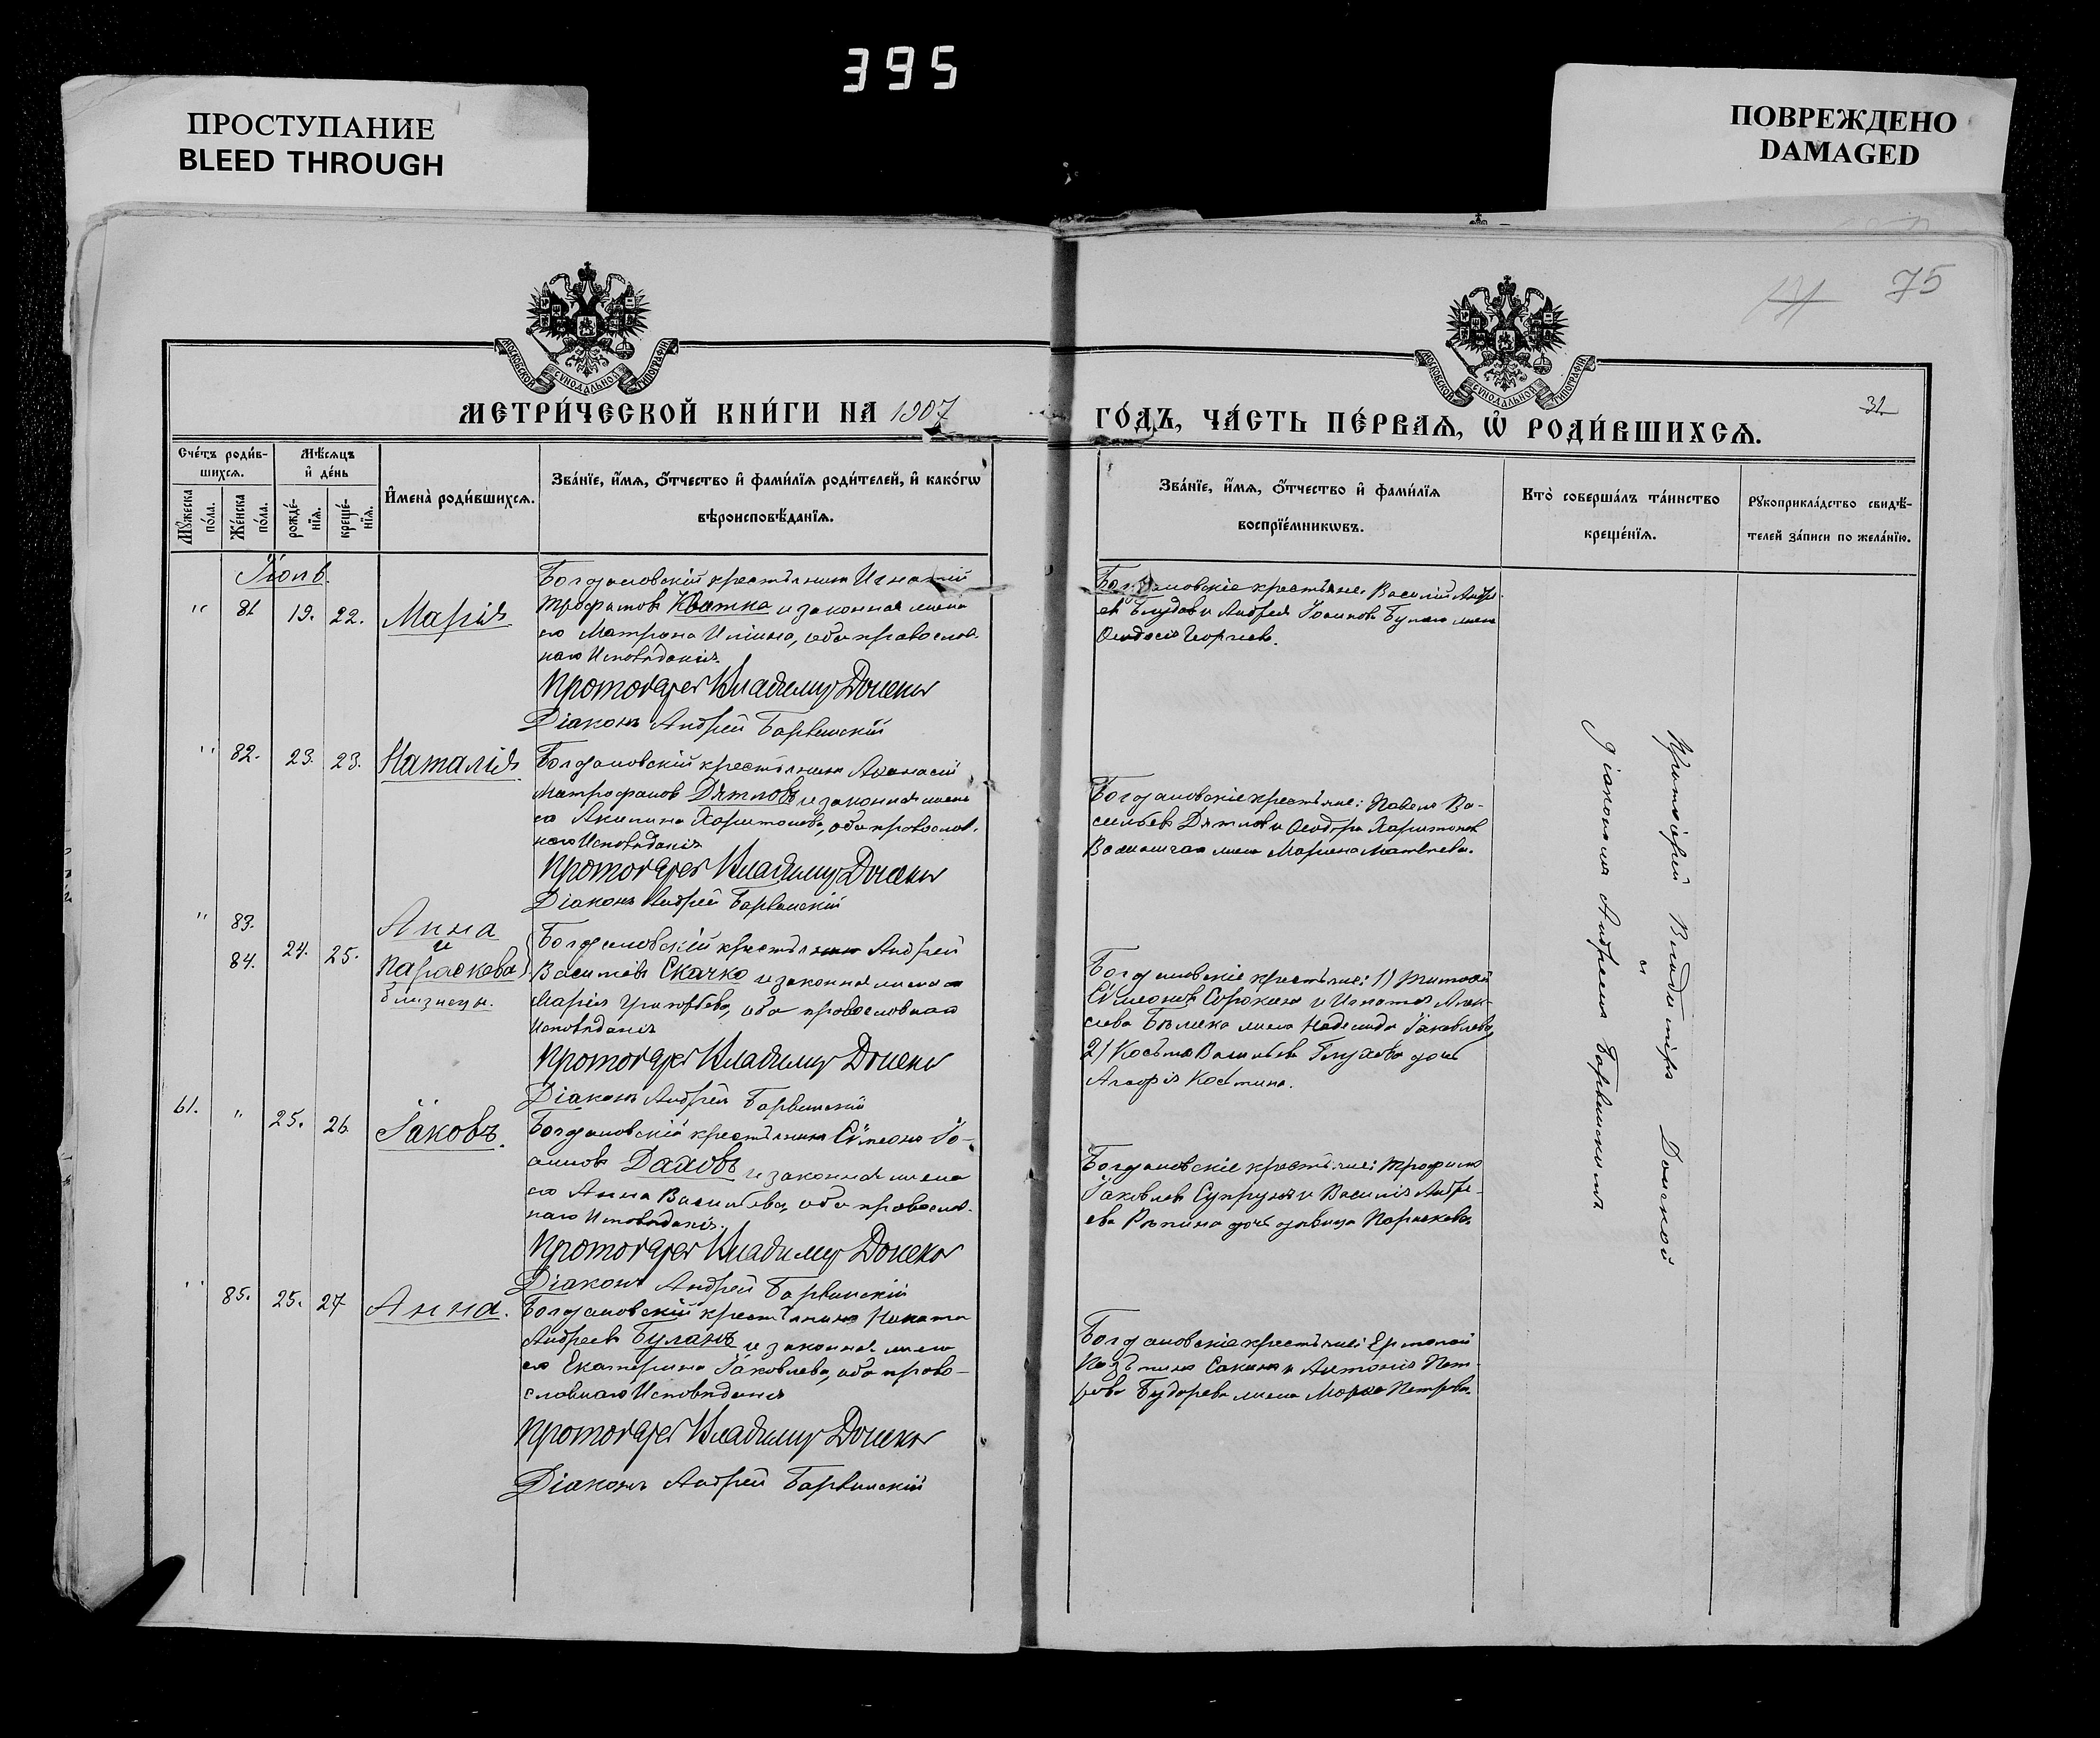 395
ПРОСТУПАНИЕ
BLEED THROUGH
ПОВРЕЖДЕНО
DAMAGED
75
31
МОСКОВСКОЙ СѴНОДАЛЬНОЙ ТИПОГРАФІИ
МОСКОВСКОЙ СѴНОДАЛЬНОЙ ТИПОГРАФІИ
МЕТРИ́ЧЕСКОЙ КНИ́ГИ НА 1907
ГО́ДЪ, ЧА́СТЬ ПЕ́РВАЯ, Ѡ РОДИ́ВШИХСЯ.
Сче́тъ роди́в-
шихся.
Мѣ́сяцъ
и де́нь
Мꙋ́жеска по́ла.
Же́нска по́ла.
рожде́-
нїя.
креще́-
нїя.
И҆мена̀ роди́вшихся.
Зва́нїе, и҆́мя, ѻ҆́тчество и҆ фами́лїя роди́телей, и҆ како́гѡ
вѣроисповѣ́данїя.
Зва́нїе, и҆́мя, ѻ҆́тчество и҆ фами́лїя
воспрїе́мникѡвъ.
Кто̀ соверша́лъ та́инство
креще́нїя.
Рꙋкоприкла́дство свидѣ́-
телей за́писи по жела́нїю.
Іюнь.
" 81 19. 22. Марія
Богдановскій крестьянинъ Игнатій
Трофимовъ Квитка и законная жена
его Матрона Ильина, оба православ-
наго Исповѣданія.
Протоіерей Владимір Донской
Діаконъ Андрей Барвинскій
Богдановскіе крестьяне: Василій Андре-
ев и Андрея Іоаннова жена
Ѳеодосія Георгіева.
" 82. 23. 23. Наталія
Богдановскій крестьянинъ Аѳанасій
Митрофановъ Дятловъ и законная жена
его Акилина Харитонова, оба православ-
наго Исповѣданія
Протоіерей Владимір Донской
Діаконъ Андрей Барвинскій
Богдановскіе крестьяне: Павелъ Ва-
сильевъ Дятловъ и Ѳеодора Харитонова
жена Марина Матвѣева.
" 83. 84. 24. 25. Анна
и
Параскева
близнецы.
Богдановскій крестьянинъ Андрей
Васильевъ Скачко и законная жена его
Марія Григорьева, оба православнаго
Исповѣданія
Протоіерей Владимір Донской
Діаконъ Андрей Барвинскій
Богдановскіе крестьяне: 1) Тимоѳей
Сѵмеоновъ Сорокинъ и Игнатія Алек-
сѣева жена Надежда Іаковлева,
2) Косьма Васильевъ Глуховъ дочь
61. " 25. 26. Іаковъ.
Богдановскій крестьянинъ Сѵмеонъ Іо-
анновъ Даховъ и законная жена
его Анна Васильева, оба православ-
наго Исповѣданія.
Протоіерей Владимір Донской
Діаконъ Андрей Барвинскій
Богдановскіе крестьяне: Трофимъ
Іаковлевъ Супрунъ и Василія Андре-
ева Рѣпина дочь дѣвица Параскева.
" 85. 25. 27 Анна.
Богдановскій крестьянинъ Никита
Андреевъ Буланъ и законная жена
его Екатерина Іаковлева, оба право-
славнаго Исповѣданія
Протоіерей Владимір Донской
Діаконъ Андрей Барвинскій
Богдановскіе крестьяне: Ермолай
Сакинъ и Антонія Пет-
рова Бударева жена Марѳа Петрова.
Протоіерей Владиміръ Донской
и
діакономъ Андреемъ Барвинскимъ